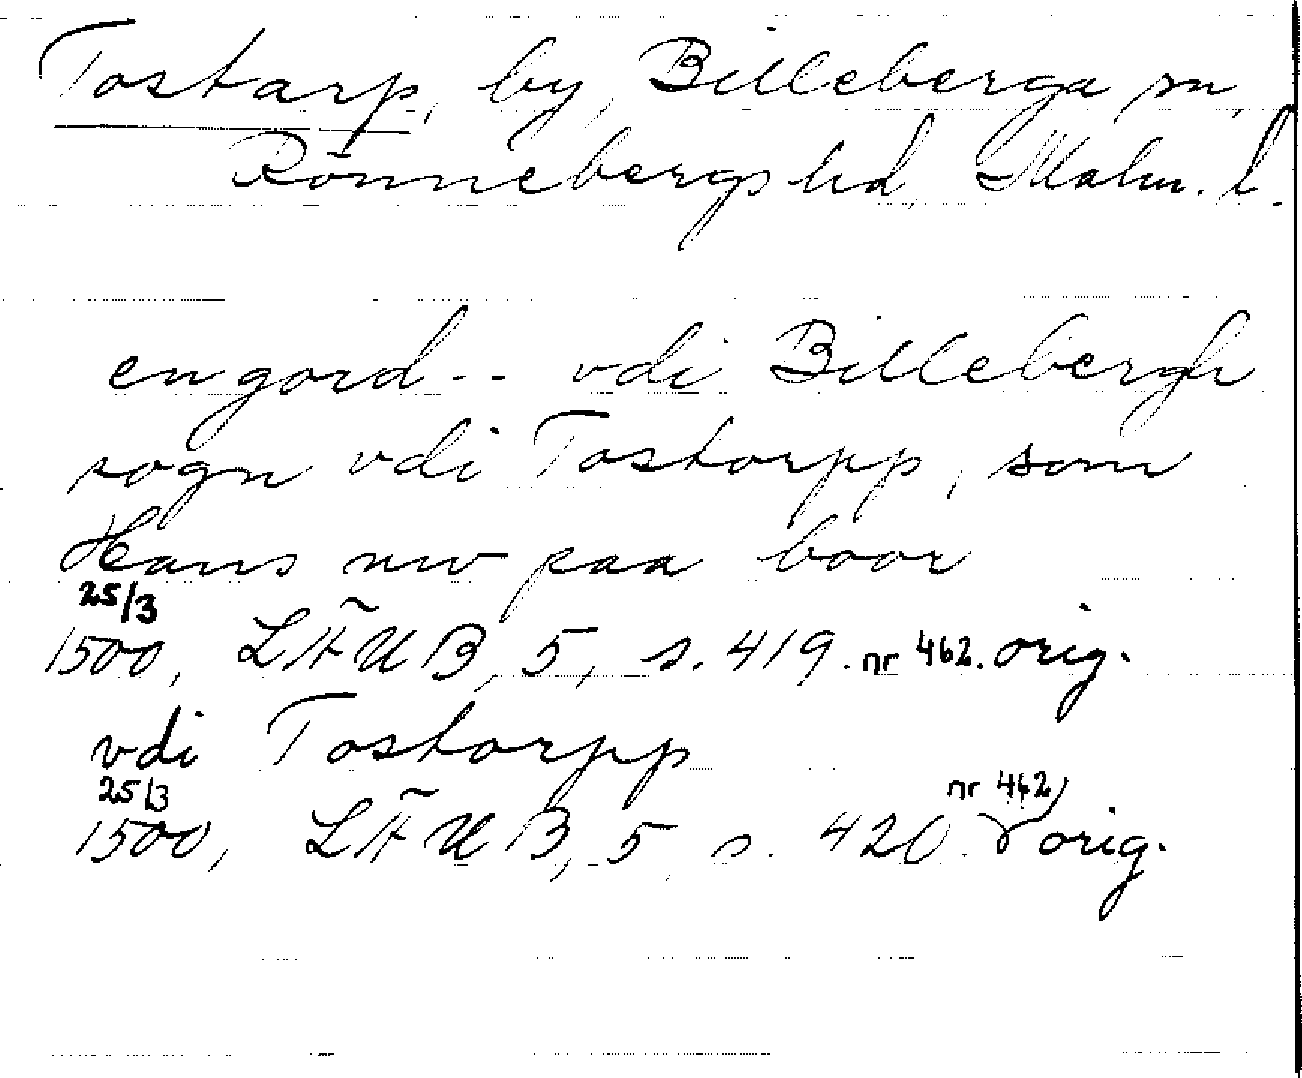 Tostarp, by, Billeberga sn,
Rönnebergs hd, Malm. l.
en gord -- vdi Billebergh
sogn vdi Tostorpp, som
Hans nw paa boor
25/3
1500, LÄUB, 5, s. 419. nr 462. orig.
vdi Tostorpp
25/3 nr 462
1500, LÄUB, 5 s. 420. orig.